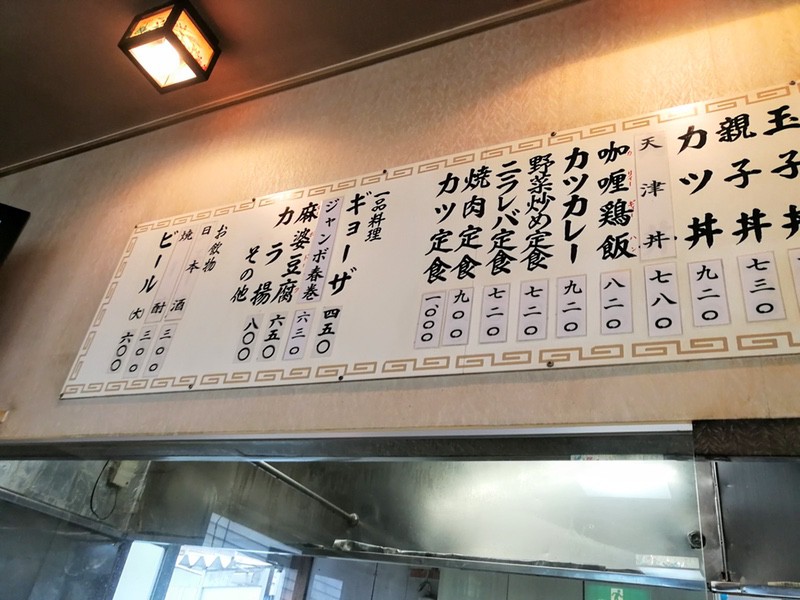 玉子丼
親子丼 七三〇
カツ丼 九二〇
天津丼 七八〇
咖喱鶏飯 八二〇
カツカレー 九二〇
野菜炒め定食 七二〇
ニラレバ定食 七二〇
焼肉定食 九〇〇
カツ定食 一、〇〇〇
一品料理
ギョーザ 四五〇
ジャンボ春巻 六三〇
麻婆豆腐 六五〇
カラ揚 八〇〇
その他
お飲物
日本酒 三〇〇
焼酎 三〇〇
ビール(大) 六〇〇